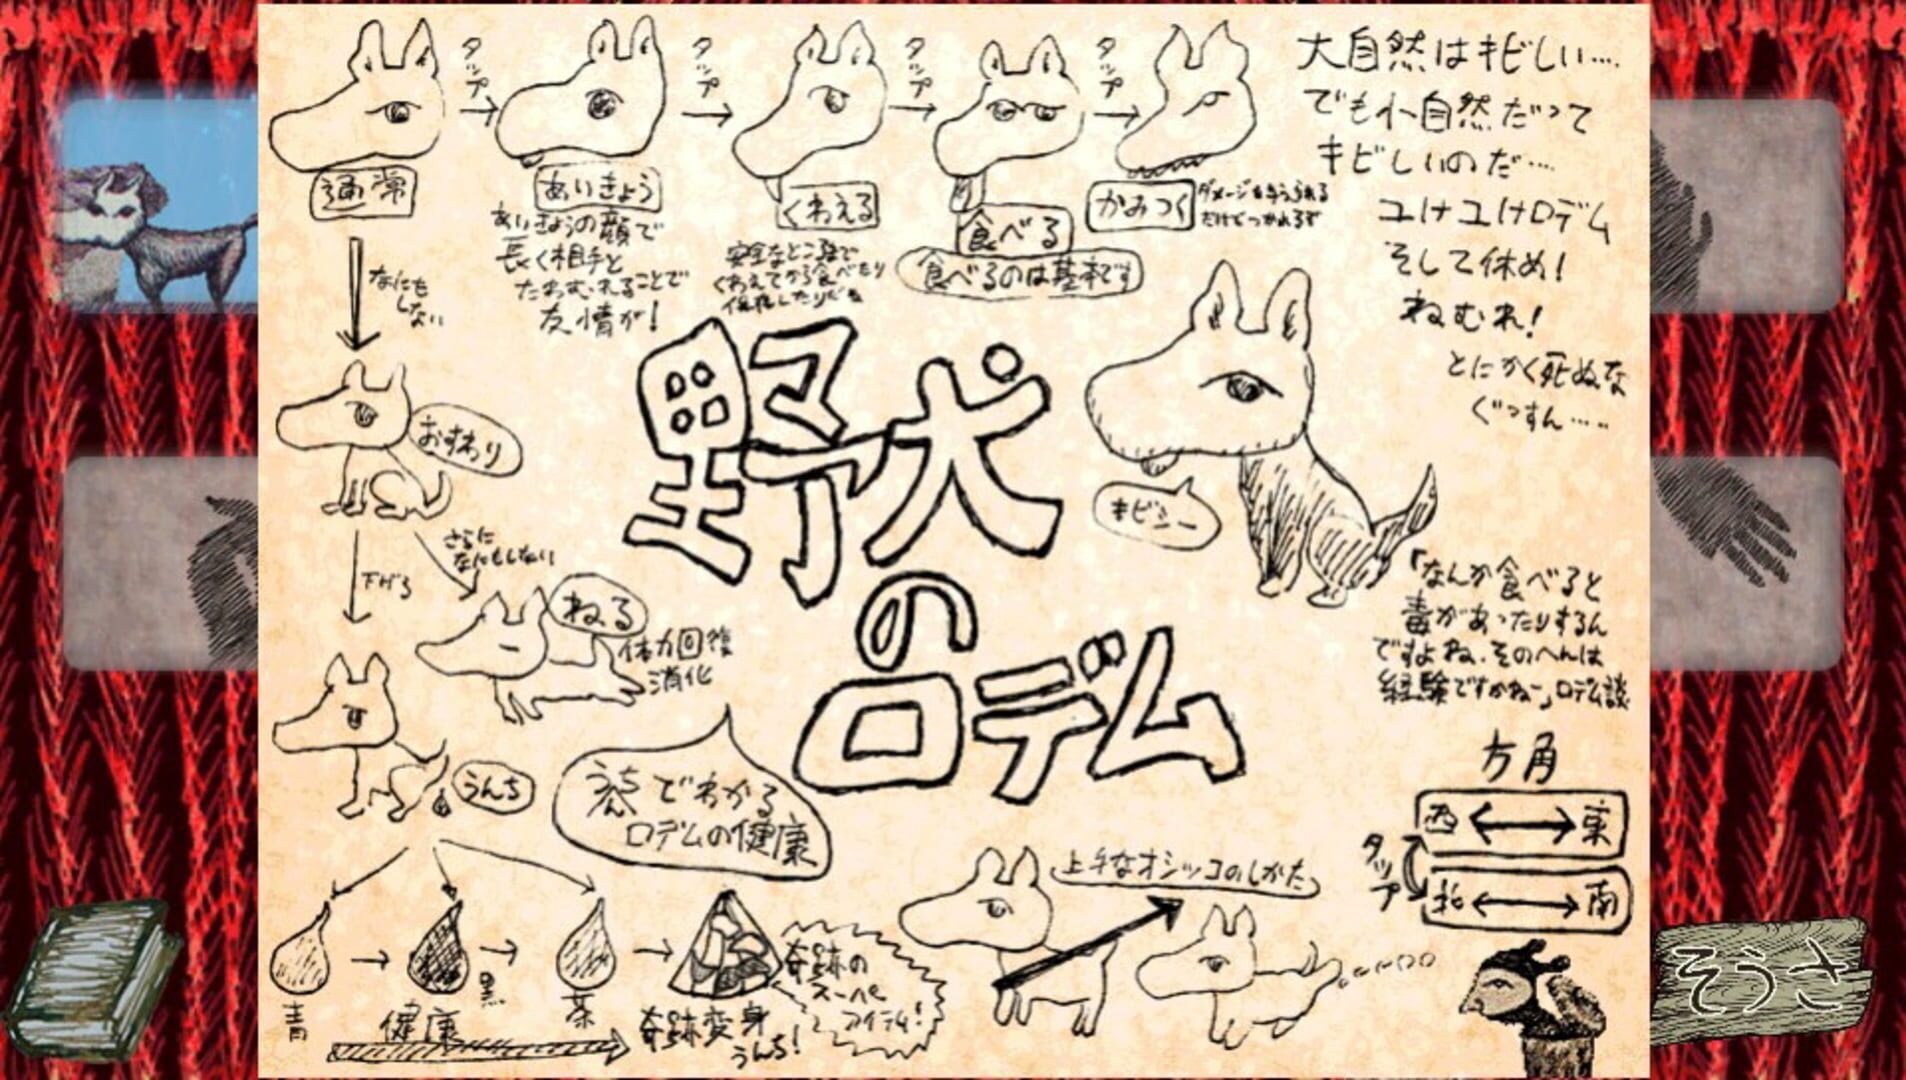 タップ
タップ
タップ
タップ
通常
あいきょう
くわえる
食べる
かみつく
あいきょうの顔で
長く相手と
たわむれることで
友情が!
安全なところで
くわえてから食べたり
食べるのは基本です
大自然はキビしい…
でも小自然だって
キビしいのだ…
ユけユけロデム
そして休め!
ねむれ!
とにかく死ぬな
ぐっすん……
なにも
しない
おすわり
さらに
なにもしない
下げる
ねる
体力回復
消化
うんち
野犬
の
ロデム
キビシー
「なんか食べると
毒があったりするん
ですよね、そのへんは
経験ですかねー」ロデム談
方角
西
東
タップ
北
南
うんちでわかる
ロデムの健康
青
健康
黒
茶
奇跡変身
うんち!
奇跡の
スーパー
アイテム!
上手なオシッコのしかた
そうさ